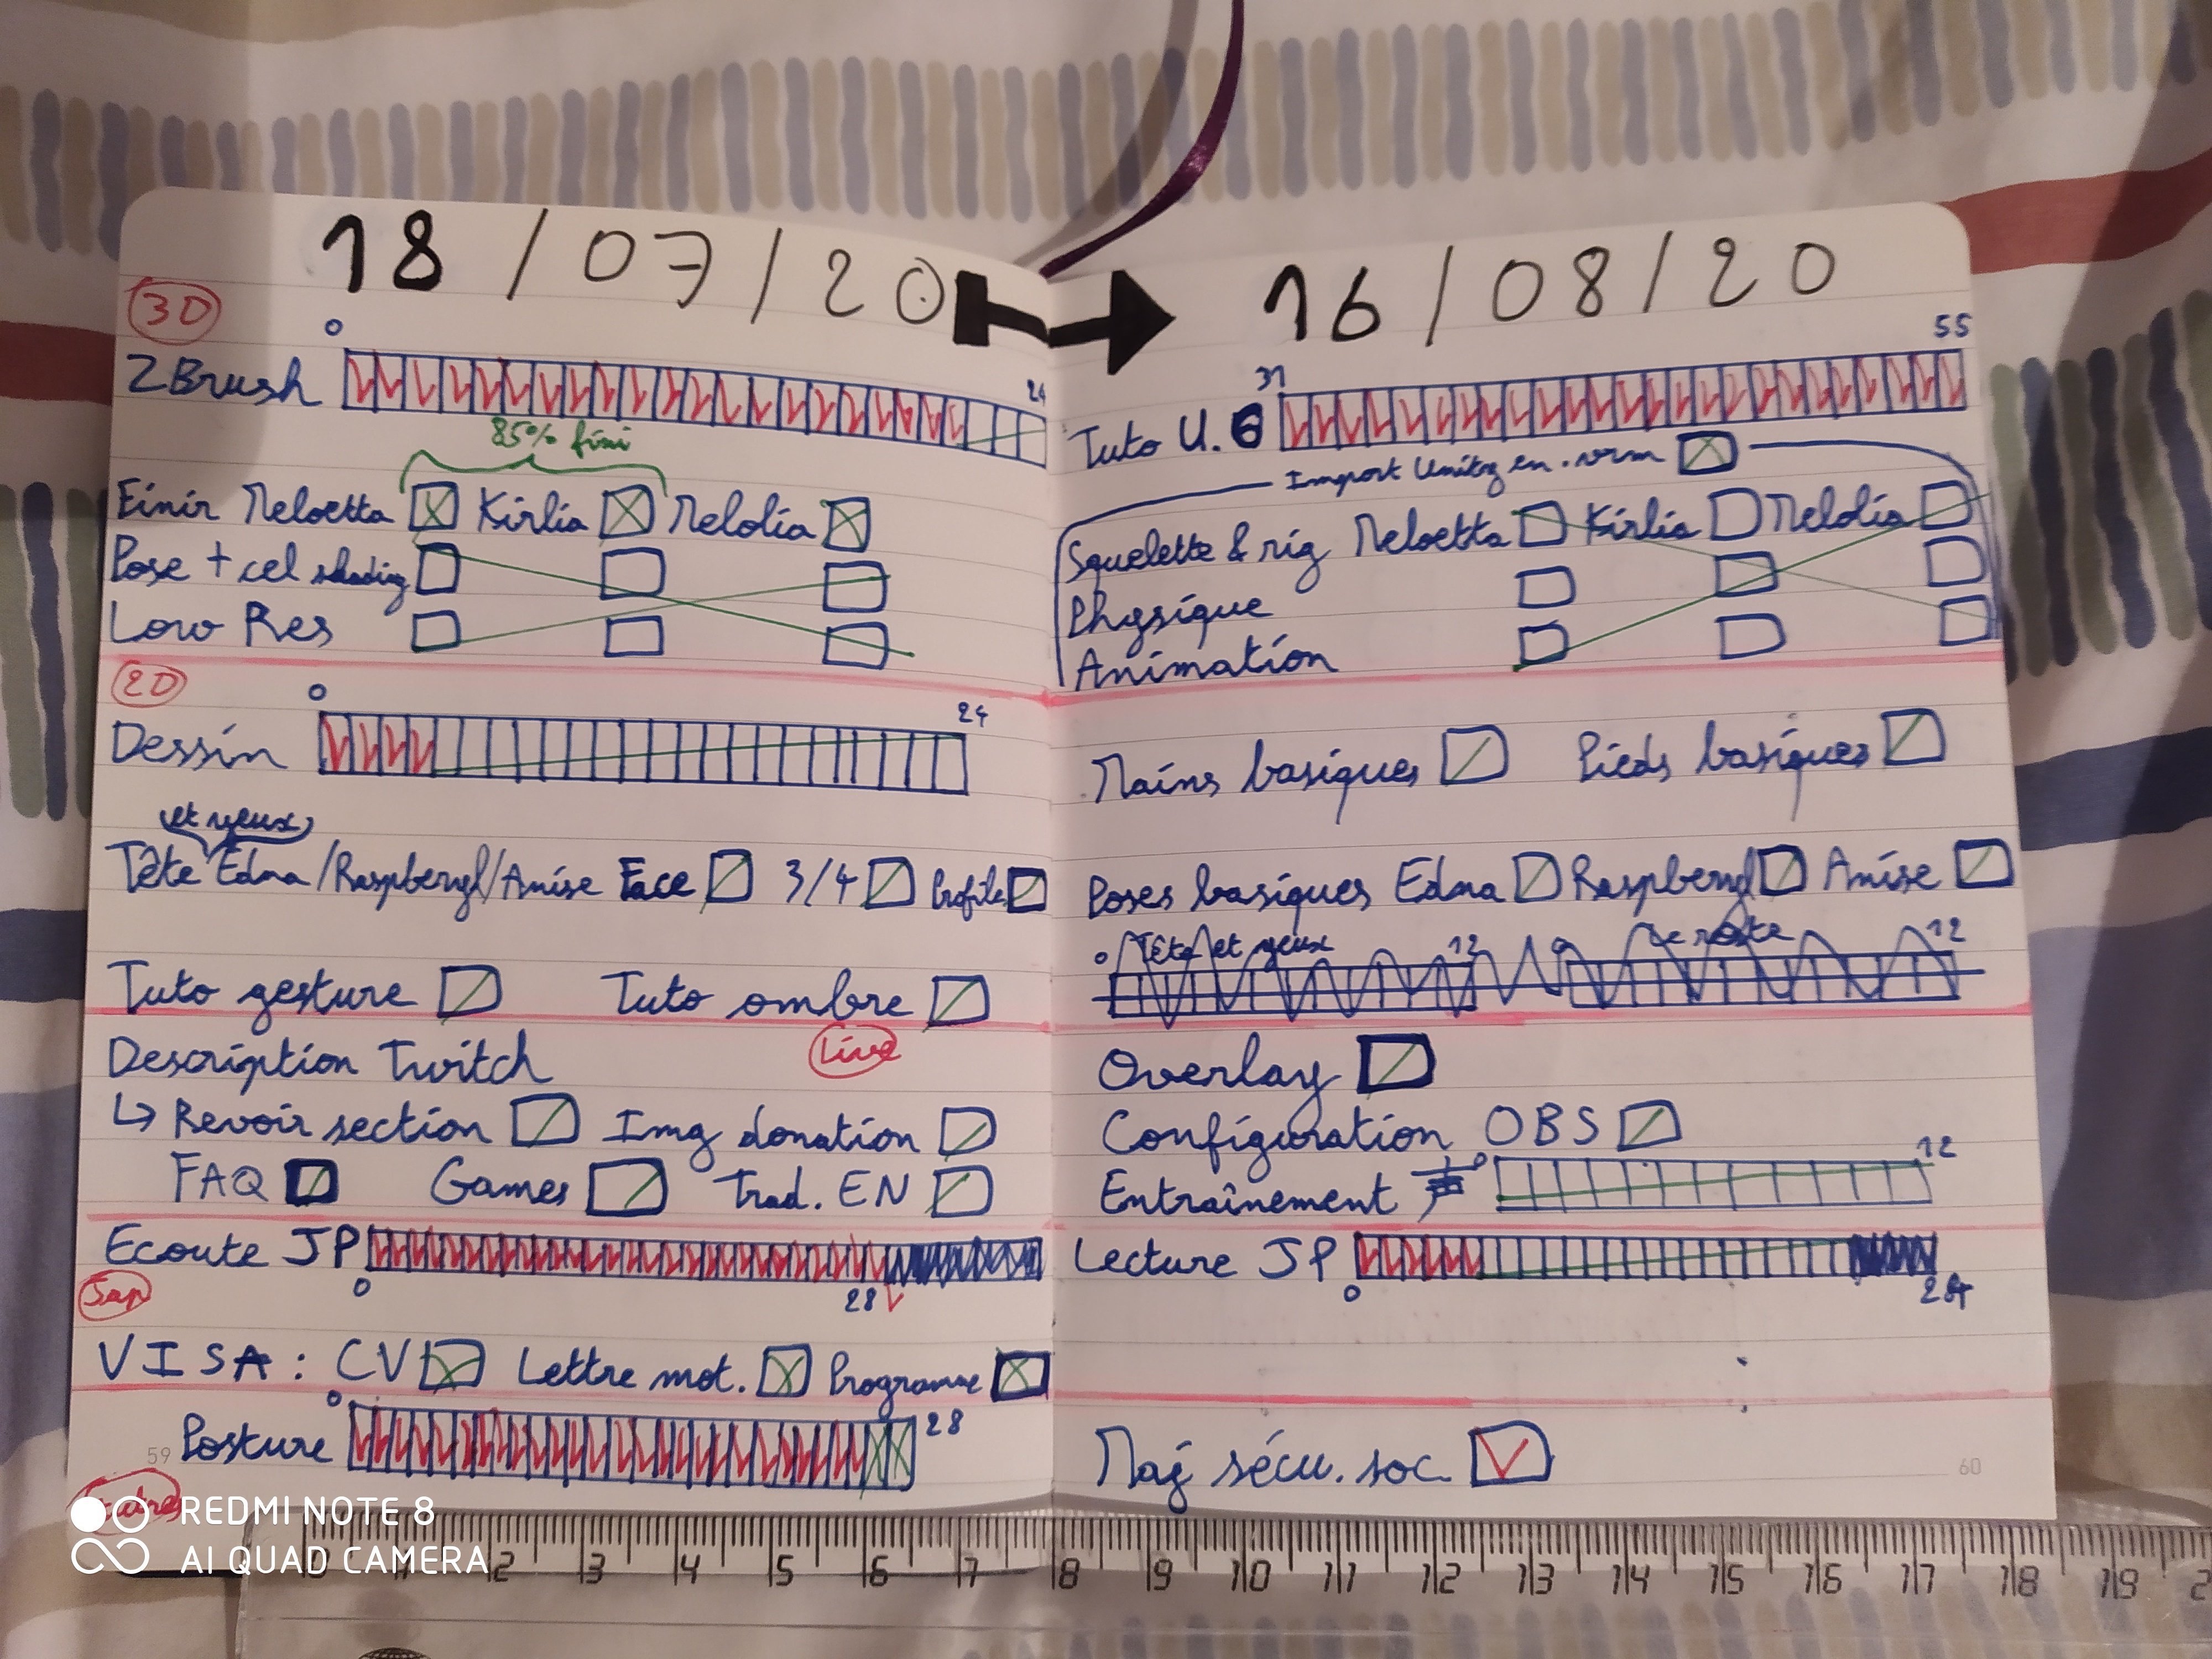 18/07/20
3D
0
ZBrush
24
85% fini
Finir Meloetta Kirlia Melolia
Pose + cel shading
Low Res
2D
0
24
Dessin
et yeux
Tête Edna/Raspberyl/Anise Face 3/4 Profile
Tuto gesture Tuto ombre
Live
Description Twitch
↳ Revoir section Img donation
FAQ Games Trad. EN
Ecoute JP
0 28
Jap
VISA : CV Lettre mot. Programme
0
Posture 28
59
Autres
16/08/20
31 55
Tuto U.
Import Unity en .vrm
Squelette & rig Meloetta Kirlia Melolia
Physique
Animation
Mains basiques Pieds basiques
Poses basiques Edna Raspberyl Anise
0 Tête et yeux 12 0 le reste 12
Overlay
Configuration OBS
0 12
Entraînement 声
Lecture JP
0 24
Maj sécu. soc.
60
REDMI NOTE 8
AI QUAD CAMERA
0 1 2 3 4 5 6 7 8 9 10 11 12 13 14 15 16 17 18 19 2